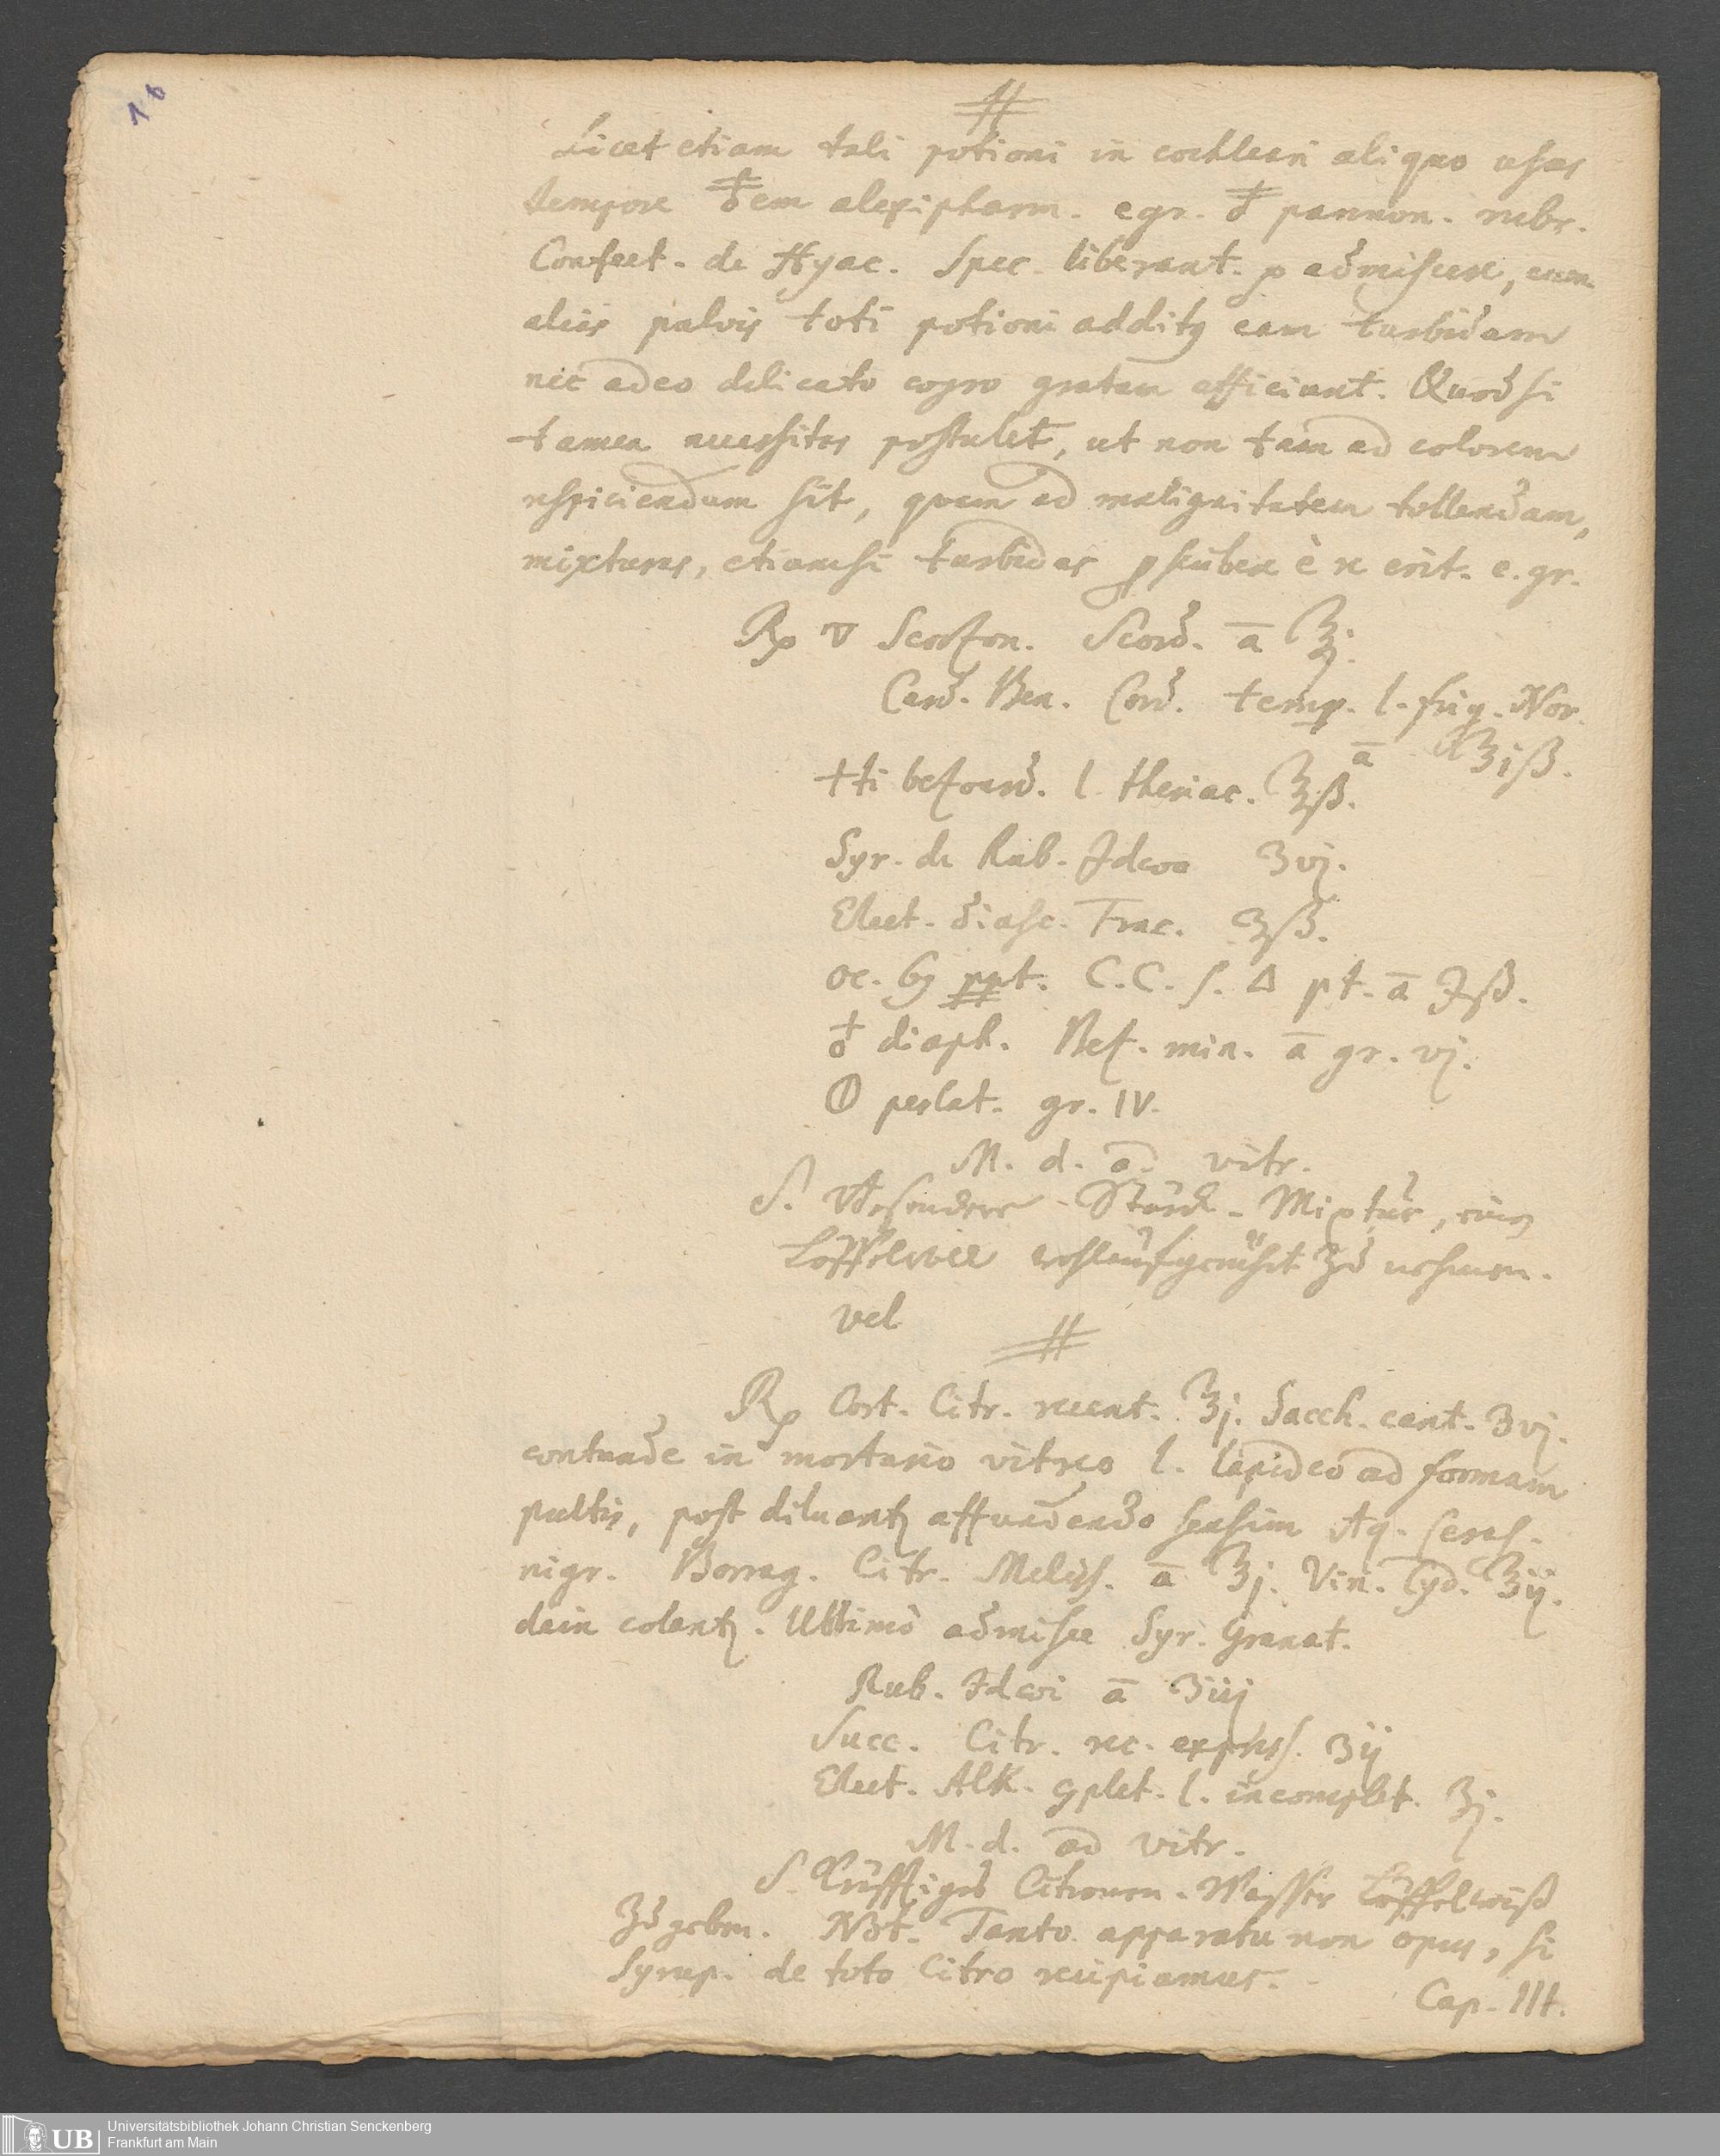 16
#
Licet etiam tali potioni in cochleari aliquo usus
tempore ♁em alexipharm. egr. ♁ pannon. rubr.
Confect. de Hyac. Spec. liberant. p admiscere, cum
alias pulvis toti potioni additq eam turbidam
nec adeo delicato egro gratam efficiunt. Quodsi
tamen necessitas postulet, ut non tam ad colorem
respiciendum sit, quam ad malignitatem tollendam,
mixturas, etiamsi turbidas pscribere è re erit. e. gr.
Rp ▽ Scorzon. Scord. ā ℥j.
Card. Ben. Cord. temp. l. frig. Nor.
ā ℥iß.
tti bezoard. l. theriac. ℥ß.
Syr. de Rub. Idaeo ʒvj.
Elect. diasc. Frac. ʒß.
oc. 69 ppt. C.C. s. △ pt. ā ℈ß.
♁ diaph. Bez. min. ā gr. vj.
perlat. gr. IV.
M. d. ad vitr.
S. Besondere Stärck-Mixtur,
Löffelvoll zu nehmen.
vel
#
Rp Cort. Citr. recent. ℥j. Sacch. cant. ʒvj.
contunde in mortario vitreo l. lapideo ad formam
pultis, post diluantz affundendo sensim Aq. Ceras.
nigr. Borrag. Citr. Meliss. ā ℥j. Vin. Cyd. ℥ij.
dein colentz. Ultimò admisce Syr. Granat.
Rub. Idaei ā ʒiij
Succ. Citr. rec. express. ʒij
Elect. Alk. 9plet. l. incomplet. ʒj.
M. d. ad vitr.
S. Kräfftiges Citronen-Wasser Löffelweiß
zu geben. NBt. Tanto apparatu non opus, si
Syrup. de toto Citro recipiamus.
Cap. III.